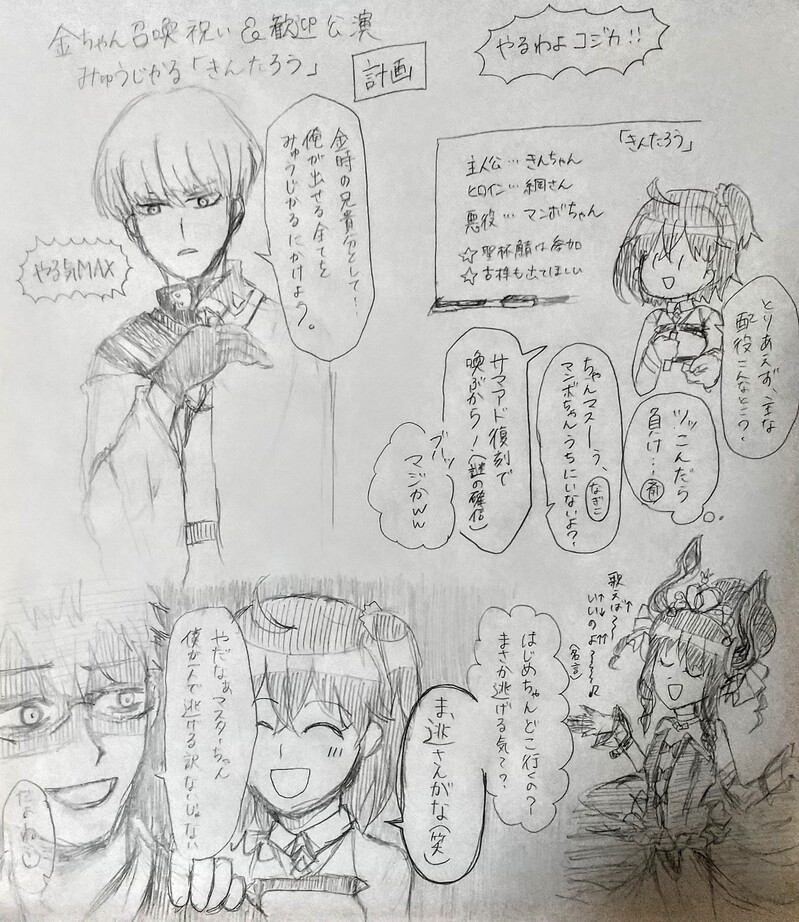 金ちゃん召喚祝い&歓迎公演
みゅうじかる「きんたろう」
計画
やるわよ コジカ!!
金時の兄貴分として…
俺が出せる全てを
みゅうじかるにかけよう。
やる気MAX
「きんたろう」
主人公…きんちゃん
ヒロイン…綱さん
悪役…マンボちゃん
☆聖杯鯖は参加
☆古株も出てほしい
とりあえず、主な
配役こんなとこ?
ツッこんだら
負け…
ちゃんマスーう、
マンボちゃんうちにいないよ?
なぎこ
サマアド復刻で
喚ぶから!(謎の確信)
ブルッ
マジかww
歌えば~
いいのよ~~~♪
(名言)
はじめちゃんどこ行くの?
まさか逃げる気で?
ま、逃さんがな(笑)
やだなぁマスターちゃん
僕が一人で逃げる訳ないじゃない
だよね